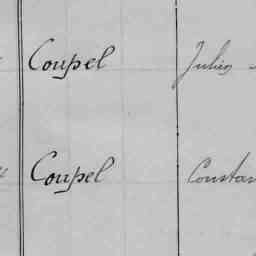 Coupel Julien
Coupel Constan